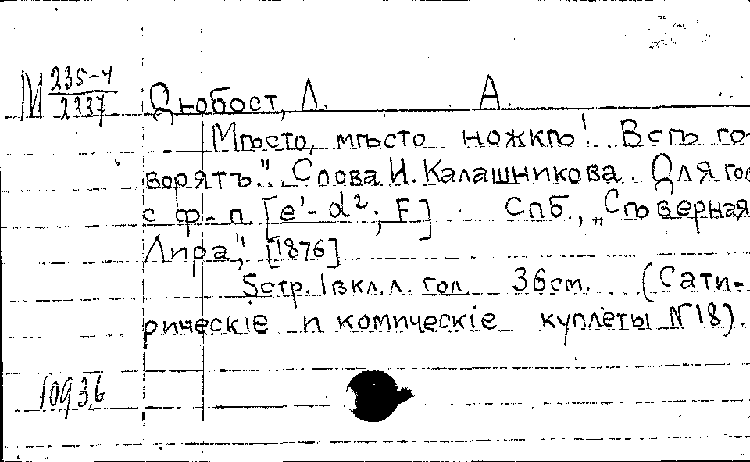 М 235-4/2337 Дюбост, Л. А.
Мѣсто, мѣсто ножкѣ! Всѣ го-
ворятъ." Слова И. Калашникова. Для гол
с ф-п [e'-d²; F] Спб., „Сѣверная
Лира", [1876]
5стр. 1вкл.л. гол 36см. (Сати-
рическiе и комическiе куплеты №18).
10936